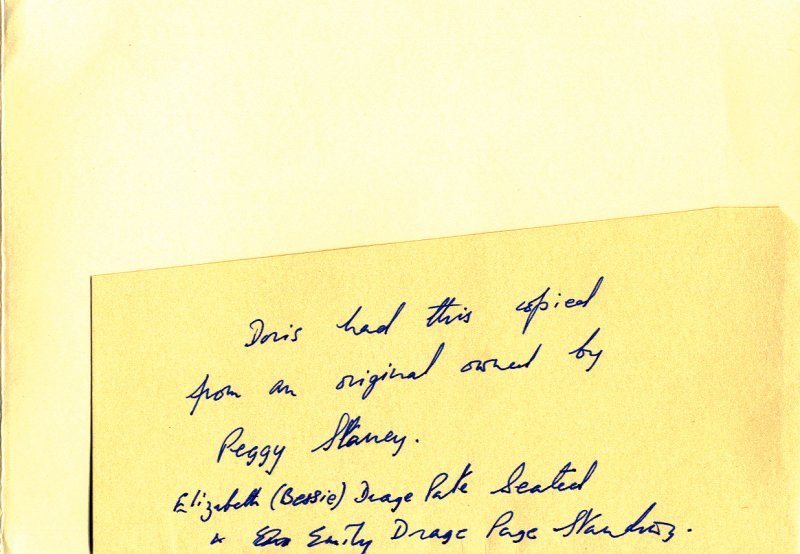 Doris had this copied
from an original owned by
Peggy Stanney.
Elizabeth (Bessie) Drage Pate Seated
& Emily Drage Page Standing.